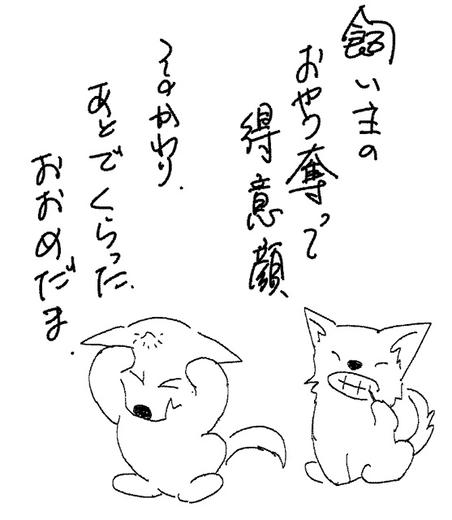 飼い主の
おやつ奪って
得意顔
そのかわり
あとでくらった
おおめだま